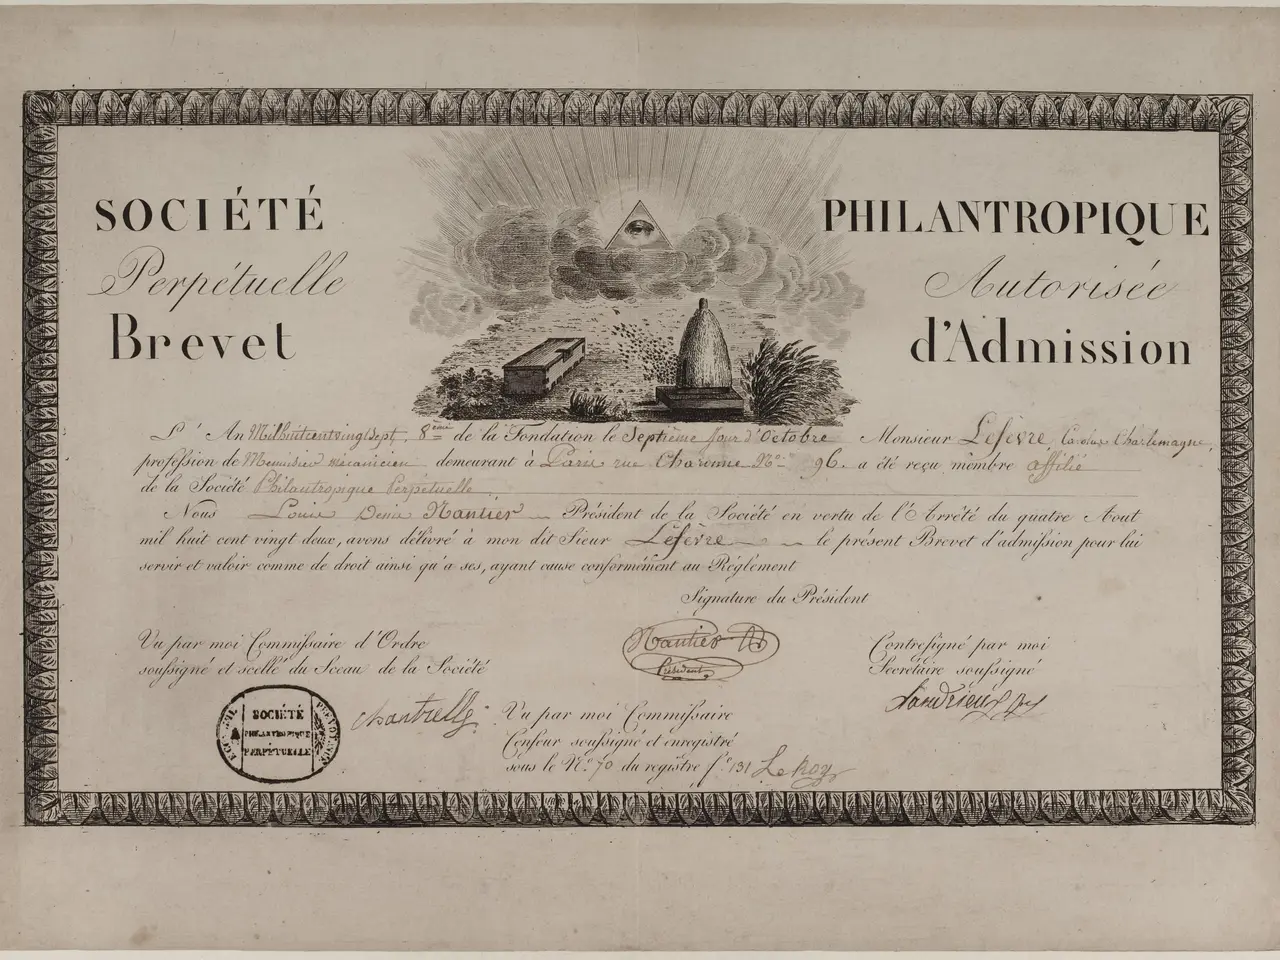 SOCIÉTÉ PHILANTROPIQUE
Perpétuelle Autorisée
Brevet d'Admission
L'An Milhuitcentvingt Sept, 8ème de la Fondation le Septième Jour d'Octobre Monsieur Lefèvre, Charlemagne,
profession de Menuisier mécanicien demeurant à Paris rue Charonne No. 96. a été reçu membre affilié
de la Société Philantropique Perpétuelle
Nous Louis Denis Nantier Président de la Société en vertu de l'Arrêté du quatre Aout
mil huit cent vingt deux, avons délivré à mon dit Sieur Lefèvre le présent Brevet d'admission pour lui
servir et valoir comme de droit ainsi qu'a ses, ayant cause conformément au Réglement
Signature du Président
Nantier
Président
Vu par moi Commissaire d'Ordre
soussigné et scellé du Sceau de la Société
Contresigné par moi
Secrétaire soussigné
SOCIÉTÉ
PHILANTROPIQUE
PERPÉTUELLE
PRÉVOYANCE
Vu par moi Commissaire
Censeur soussigné et enregistré
sous le No. 70 du registre fo 131 Le Roy